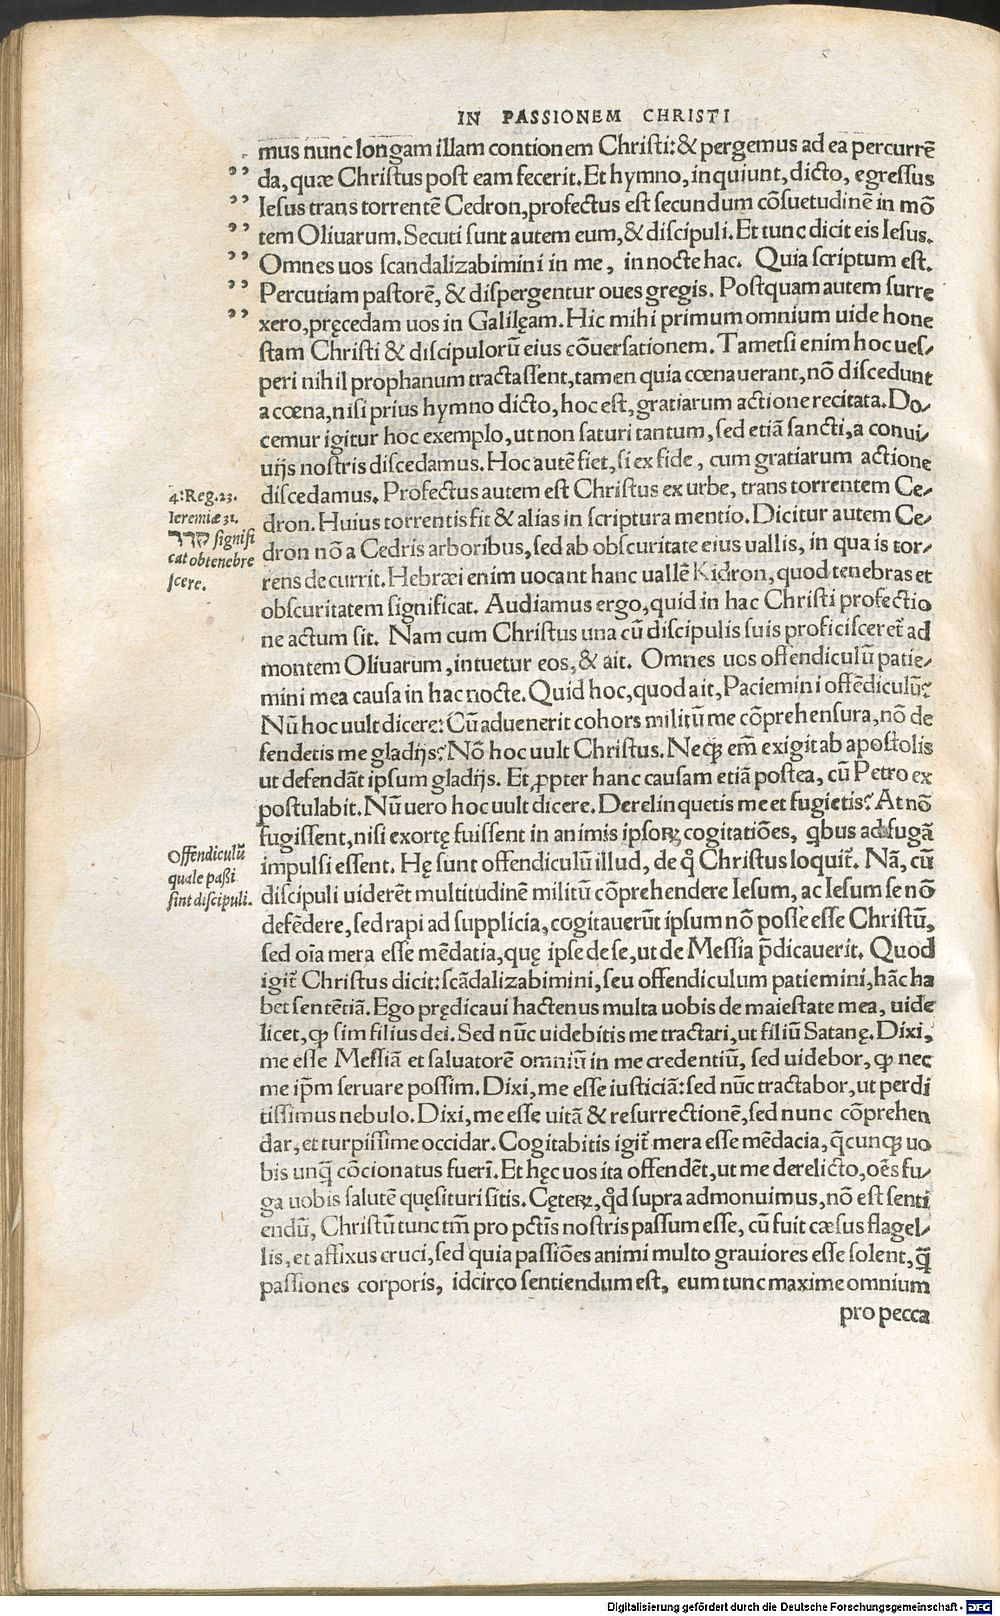 IN PASSIONEM CHRISTI
mus nunc longam illam contionem Christi: & pergemus ad ea percurrē
„ da, quæ Christus post eam fecerit. Et hymno, inquiunt, dicto, egressus
„ Iesus trans torrentē Cedron, profectus est secundum cōsuetudinē in mō
„ tem Oliuarum. Secuti sunt autem eum, & discipuli. Et tunc dicit eis Iesus.
„ Omnes uos scandalizabimini in me, in nocte hac. Quia scriptum est.
„ Percutiam pastorē, & dispergentur oues gregis. Postquam autem surre
„ xero, pręcedam uos in Galilęam. Hic mihi primum omnium uide hone
stam Christi & discipulorū eius cōuersationem. Tametsi enim hoc ues/
peri nihil prophanum tractassent, tamen quia cœnauerant, nō discedunt
a cœna, nisi prius hymno dicto, hoc est, gratiarum actione recitata. Do/
cemur igitur hoc exemplo, ut non saturi tantum, sed etiā sancti, a conui/
uijs nostris discedamus. Hoc autē fiet, si ex fide, cum gratiarum actione
discedamus. Profectus autem est Christus ex urbe, trans torrentem Ce/
dron. Huius torrentis fit & alias in scriptura mentio. Dicitur autem Ce/
dron nō a Cedris arboribus, sed ab obscuritate eius uallis, in qua is tor/
rens decurrit. Hebræi enim uocant hanc uallē Kidron, quod tenebras et
obscuritatem significat. Audiamus ergo, quid in hac Christi profectio
ne actum sit. Nam cum Christus una cū discipulis suis proficisceret᷑ ad
montem Oliuarum, intuetur eos, & ait. Omnes uos offendiculū patie/
mini mea causa in hac nocte. Quid hoc, quod ait, Paciemini offēdiculū?
Nū hoc uult dicere: Cū aduenerit cohors militū me cōprehensura, nō de
fendetis me gladijs? Nō hoc uult Christus. Neqꝫ em̄ exigit ab apostolis
ut defendāt ipsum gladijs. Et ꝓpter hanc causam etiā postea, cū Petro ex
postulabit. Nū uero hoc uult dicere. Derelinquetis me et fugietis? At nō
fugissent, nisi exortę fuissent in animis ipsoꝝ cogitatiōes, q̇bus ad fugā
impulsi essent. Hę sunt offendiculū illud, de q̊ Christus loquit᷑. Nā, cū
discipuli uiderēt multitudinē militū cōprehendere Iesum, ac Iesum se nō
defēdere, sed rapi ad supplicia, cogitauerūt ipsum nō posse esse Christū,
sed oīa mera esse mēdatia, quę ipse de se, ut de Messia p̄dicauerit. Quod
igit᷑ Christus dicit: scādalizabimini, seu offendiculum patiemini, hāc ha
bet sentētiā. Ego prędicaui hactenus multa uobis de maiestate mea, uide
licet, ꝙ sim filius dei. Sed nūc uidebitis me tractari, ut filiū Satanę. Dixi,
me esse Messiā et saluatorē omniū in me credentiū, sed uidebor, ꝙ nec
me ip̄m seruare possim. Dixi, me esse iusticiā: sed nūc tractabor, ut perdi
tissimus nebulo. Dixi, me esse uitā & resurrectionē, sed nunc cōprehen
dar, et turpissime occidar. Cogitabitis igit᷑ mera esse mēdacia, q̄cunqꝫ uo
bis unq̄ cōcionatus fueri᷑. Et hęc uos ita offendēt, ut me derelicto, oēs fu/
ga uobis salutē quęsituri sitis. Cęteꝝ, q̊d supra admonuimus, nō est senti
endū, Christū tunc tm̄ pro pctīs nostris passum esse, cū fuit cæsus flagel/
lis, et affixus cruci, sed quia passiōes animi multo grauiores esse solent, q̄
passiones corporis, idcirco sentiendum est, eum tunc maxime omnium
pro pecca
4. Reg. 23.
Ieremiæ 31.
קדר signifi
cat obtenebre
scere.
Offendiculū
quale passi
sint discipuli.
Digitalisierung gefördert durch die Deutsche Forschungsgemeinschaft - DFG